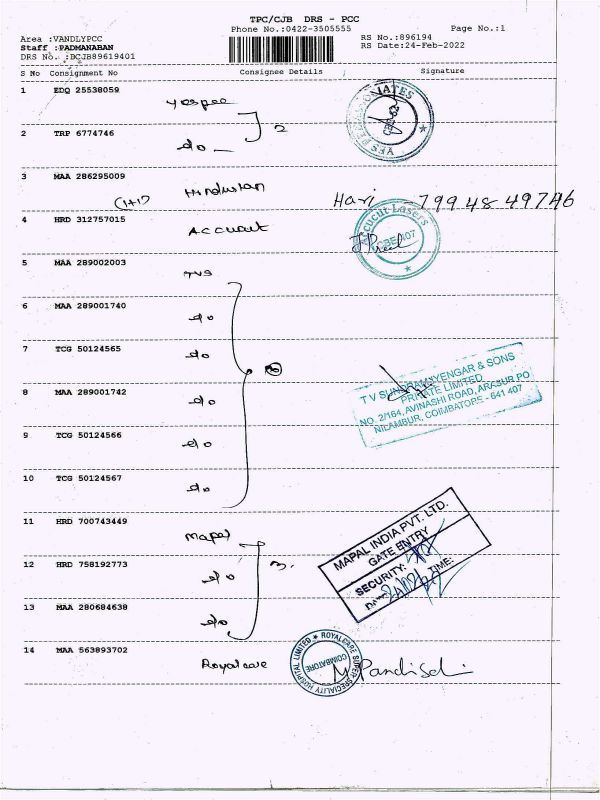 TPC/CJB DRS - PCC
Phone No.:0422-3505555
Page No.:1
Area :VANDLYPCC
RS No.:896194
Staff :PADMANABAN
RS Date:24-Feb-2022
DRS No. :BCJB89619401
S No Consignment No Consignee Details Signature
1 EDQ 25538059
yespee
2
2 TRP 6774746
do
3 MAA 286295009
Hindustan
Hari 7994849746
(1+1)
4 HRD 312757015
Accucut
Accucut Lasers
CBE 407
5 MAA 289002003
TVS
6 MAA 289001740
do
7 TCG 50124565
do
6
8 MAA 289001742
do
T V SUNDRAM IYENGAR & SONS
PRIVATE LIMITED
NO. 2/164, AVINASHI ROAD, ARASUR PO
NILAMBUR, COIMBATORE - 641 407
9 TCG 50124566
do
10 TCG 50124567
do
11 HRD 700743449
Mapal
MAPAL INDIA PVT. LTD.
GATE ENTRY
SECURITY:
DATE: TIME:
12 HRD 758192773
do
3
13 MAA 280684638
do
14 MAA 563893702
Royalcare
ROYALCARE SUPER SPECIALITY HOSPITAL LIMITED
COIMBATORE